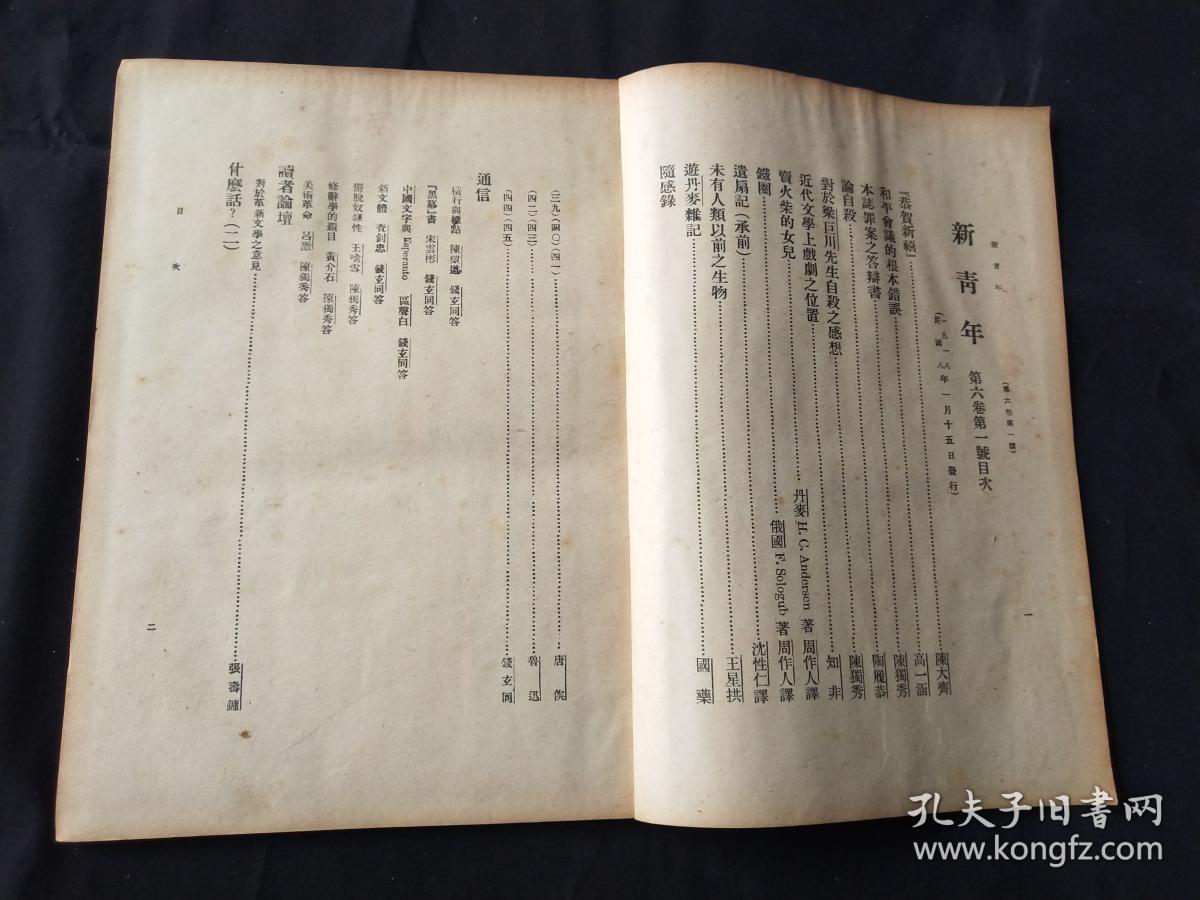 新青年
（第六卷第一號）
一
新青年 第六卷第一號目次
（一九一八 民國八年一月十五日發行）
『恭賀新禧』……陳大齊
和平會議的根本錯誤……高一涵
本誌罪案之答辯書……陳獨秀
論自殺……陶履恭
對於梁巨川先生自殺之感想……陳獨秀
近代文學上戲劇之位置……知非
賣火柴的女兒……丹麥 H. C. Anderson 著 周作人譯
鐵圈……俄國 F. Sologub 著 周作人譯
遺扇記（承前）……沈性仁譯
未有人類以前之生物……王星拱
遊丹麥雜記……國藥
隨感錄
（三九）（四〇）（四一）……唐俟
（四二）（四三）……魯迅
（四四）（四五）……錢玄同
通信
橫行與標點 陳望道 錢玄同答
『黑幕』書 宋雲彬 錢玄同答
中國文字與 Esperanto 區聲白 錢玄同答
新文體 查釗忠 錢玄同答
擺脫奴隸性 王禽雪 陳獨秀答
修辭學的題目 黃介石 陳獨秀答
美術革命 呂澂 陳獨秀答
讀者論壇
對於革新文學之意見……張壽鏞
什麼話？（二）
目次
二
孔夫子旧书网
www.kongfz.com